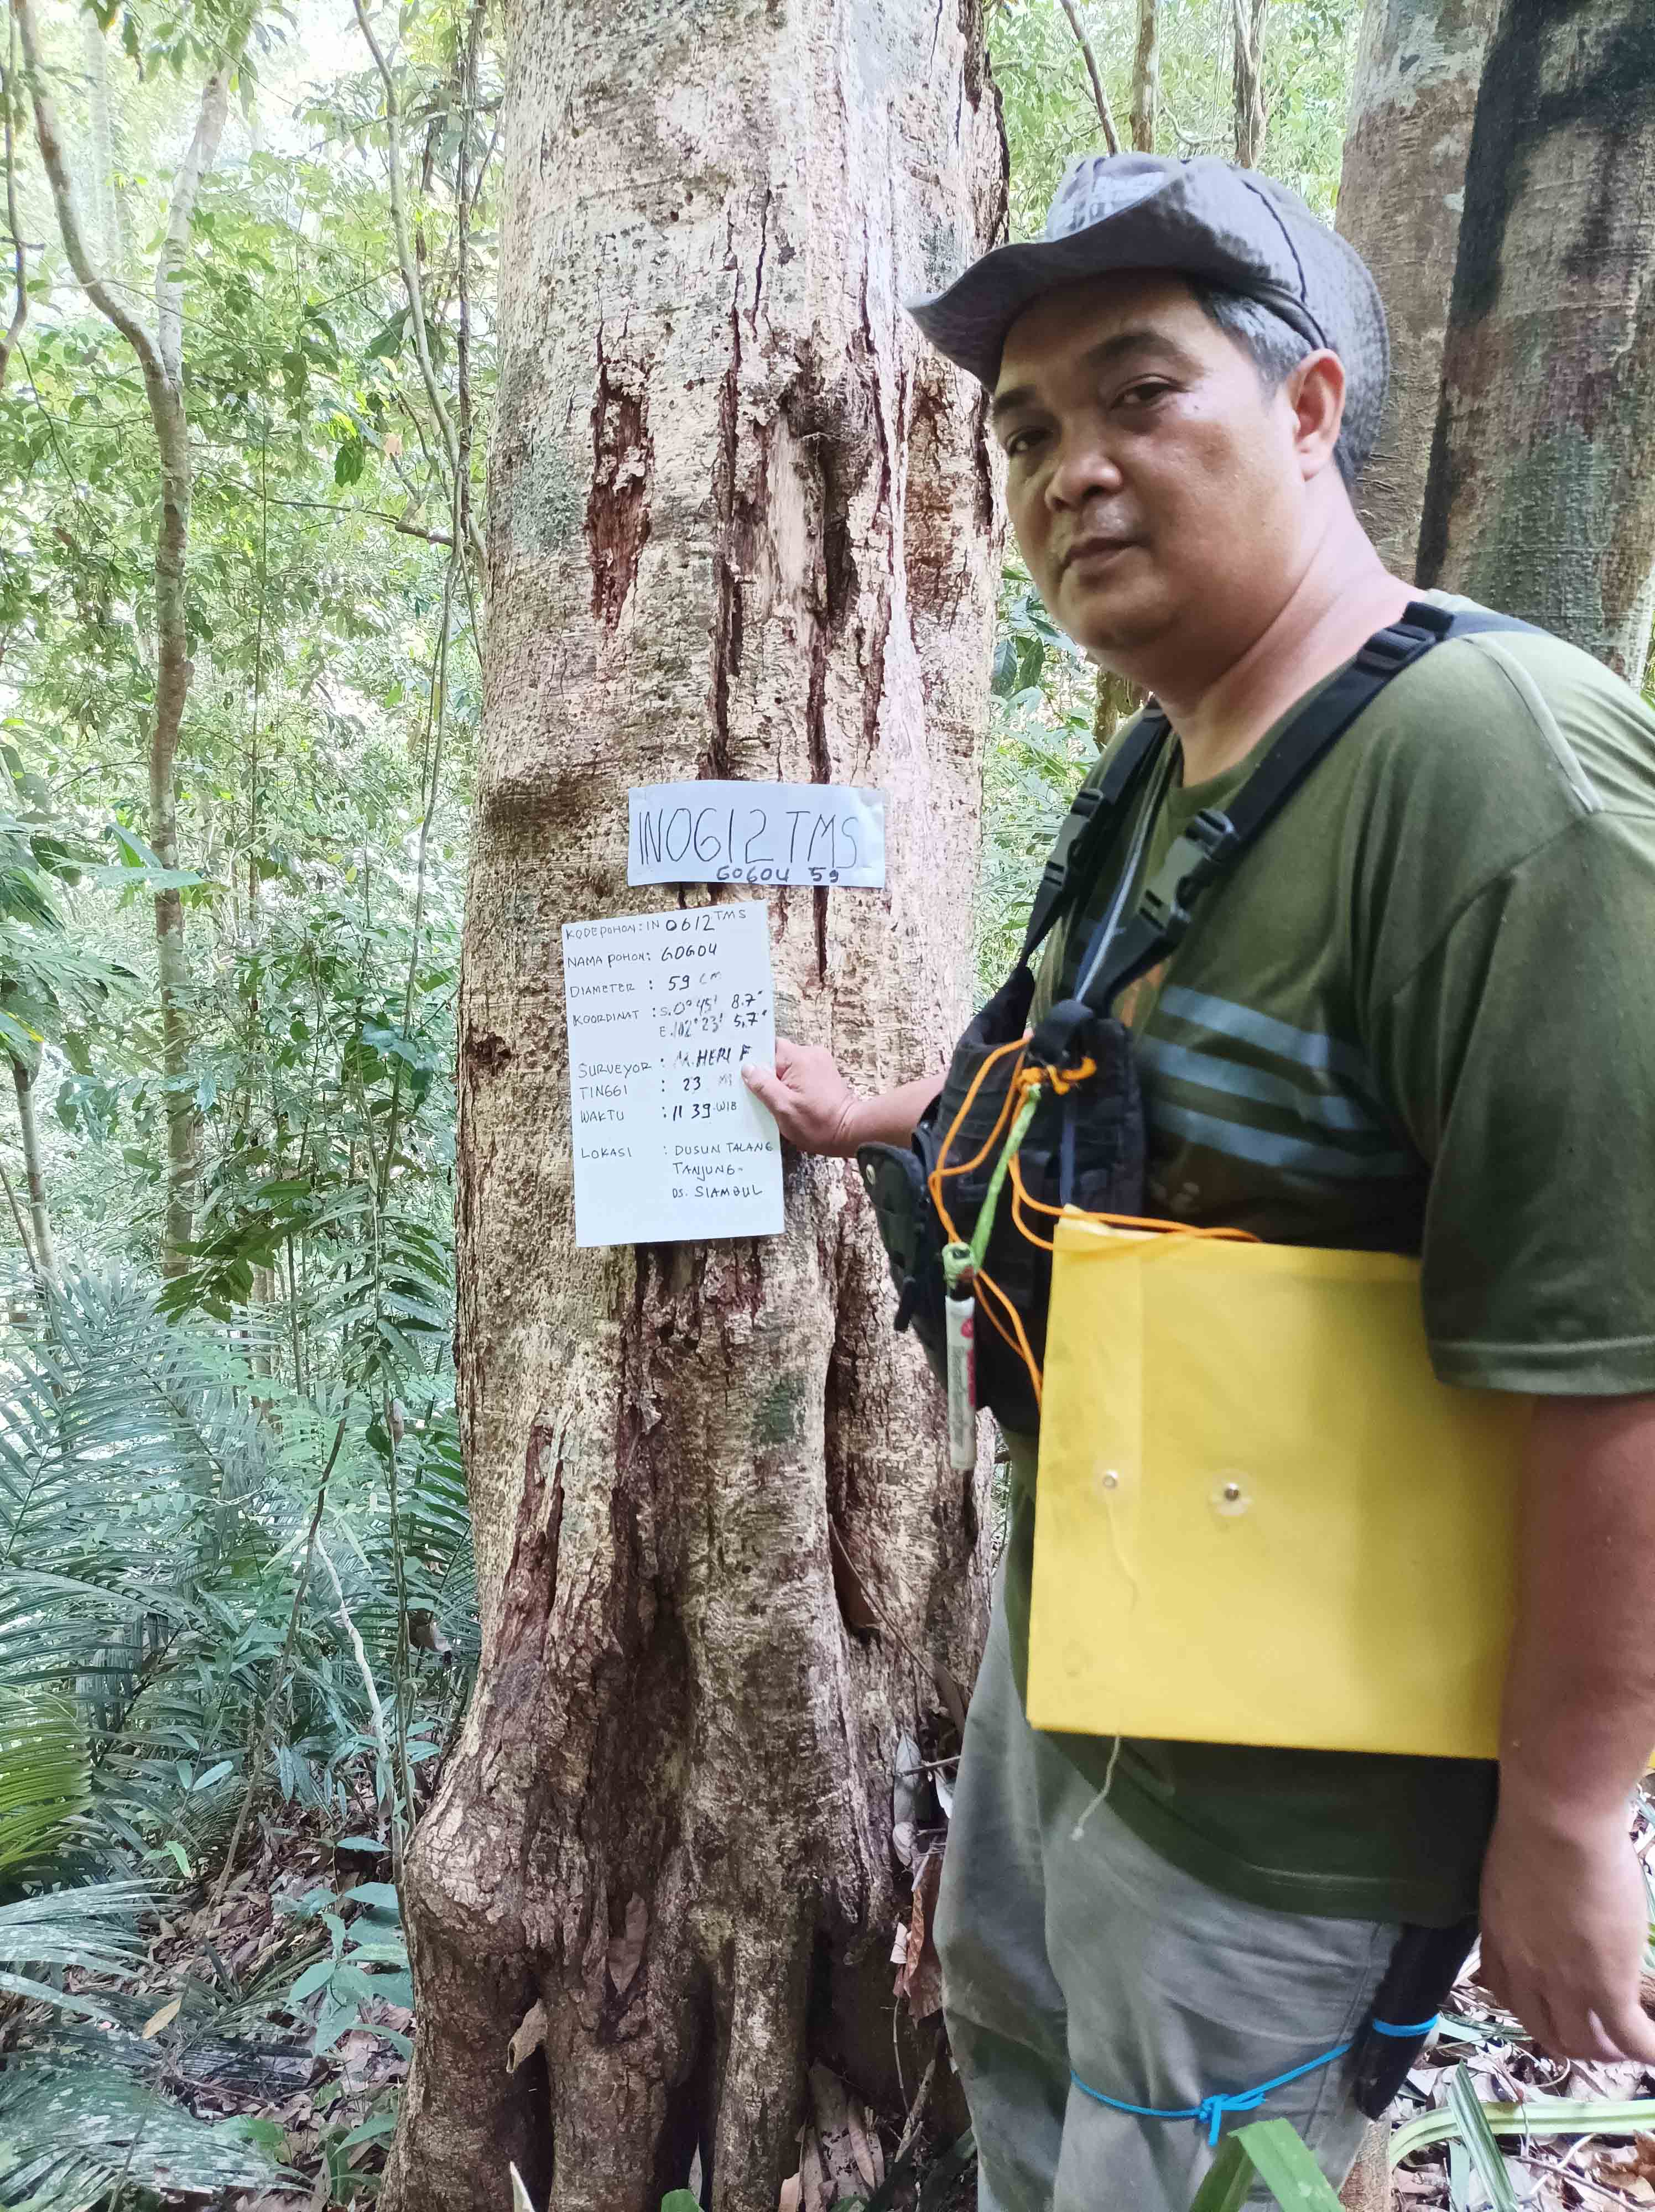 IN0612 TMS
GOGOU 59
KODE POHON : IN 0612 TMS
NAMA POHON : GOGOU
DIAMETER : 59 CM
KOORDINAT : S. 0° 45' 8.7"
E. 102° 23' 5,7"
SURVEYOR : M. HERI F
TINGGI : 23 M
WAKTU : 11 39 WIB
LOKASI : DUSUN TALANG
TANJUNG-
DS. SIAMBUL